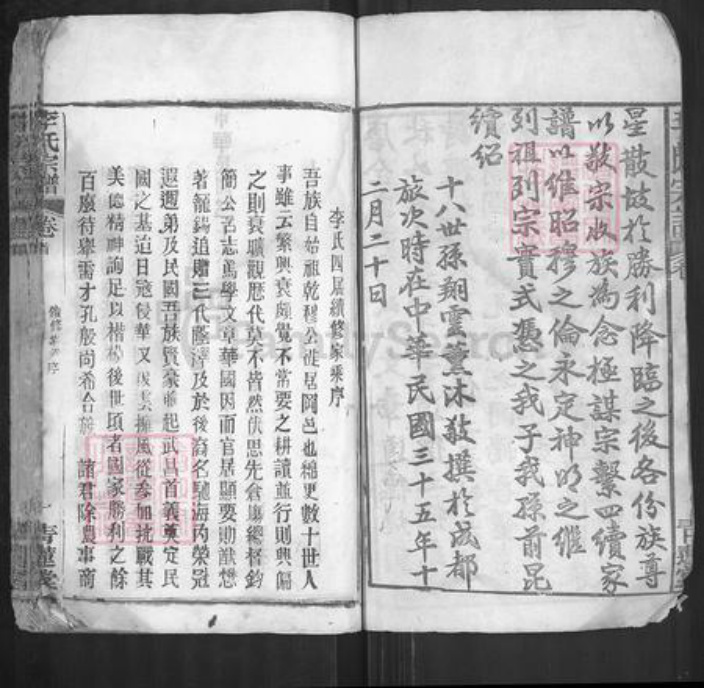 星散故於勝利降臨之後各份族尊
以敬宗收族為念極謀宗繫四續家
譜以維昭穆之倫永定神明之繼
列祖列宗實式憑之我子我孫前昆
續紹
十八世孫翔雲薰沐敬撰於成都
旅次時在中華民國三十五年十
二月二十日
李氏四屆續修家乘序
吾族自始祖乾穆公徙居岡邑也綿更數十世人
事雖云繁興衰頗覺不常要之耕讀並行則興偏
之則衰曠觀歷代莫不皆然伏思先倉場總督鈞
簡公諱志篤學文章華國因而官居顯要勛猷懋
著寵錫追贈三代蔭澤及於後裔名馳海內榮冠
遐邇弟及民國五族賢豪並起武昌首義奠定民
國之基迨日寇侵華又 風從參加抗戰其
美德精神詢足以楷模後世頃者國家勝利之餘
百廢待舉需才孔殷尚希合族 諸君除農事商
李氏宗譜
卷首
續修 序
一 青蓮堂
FamilySearch